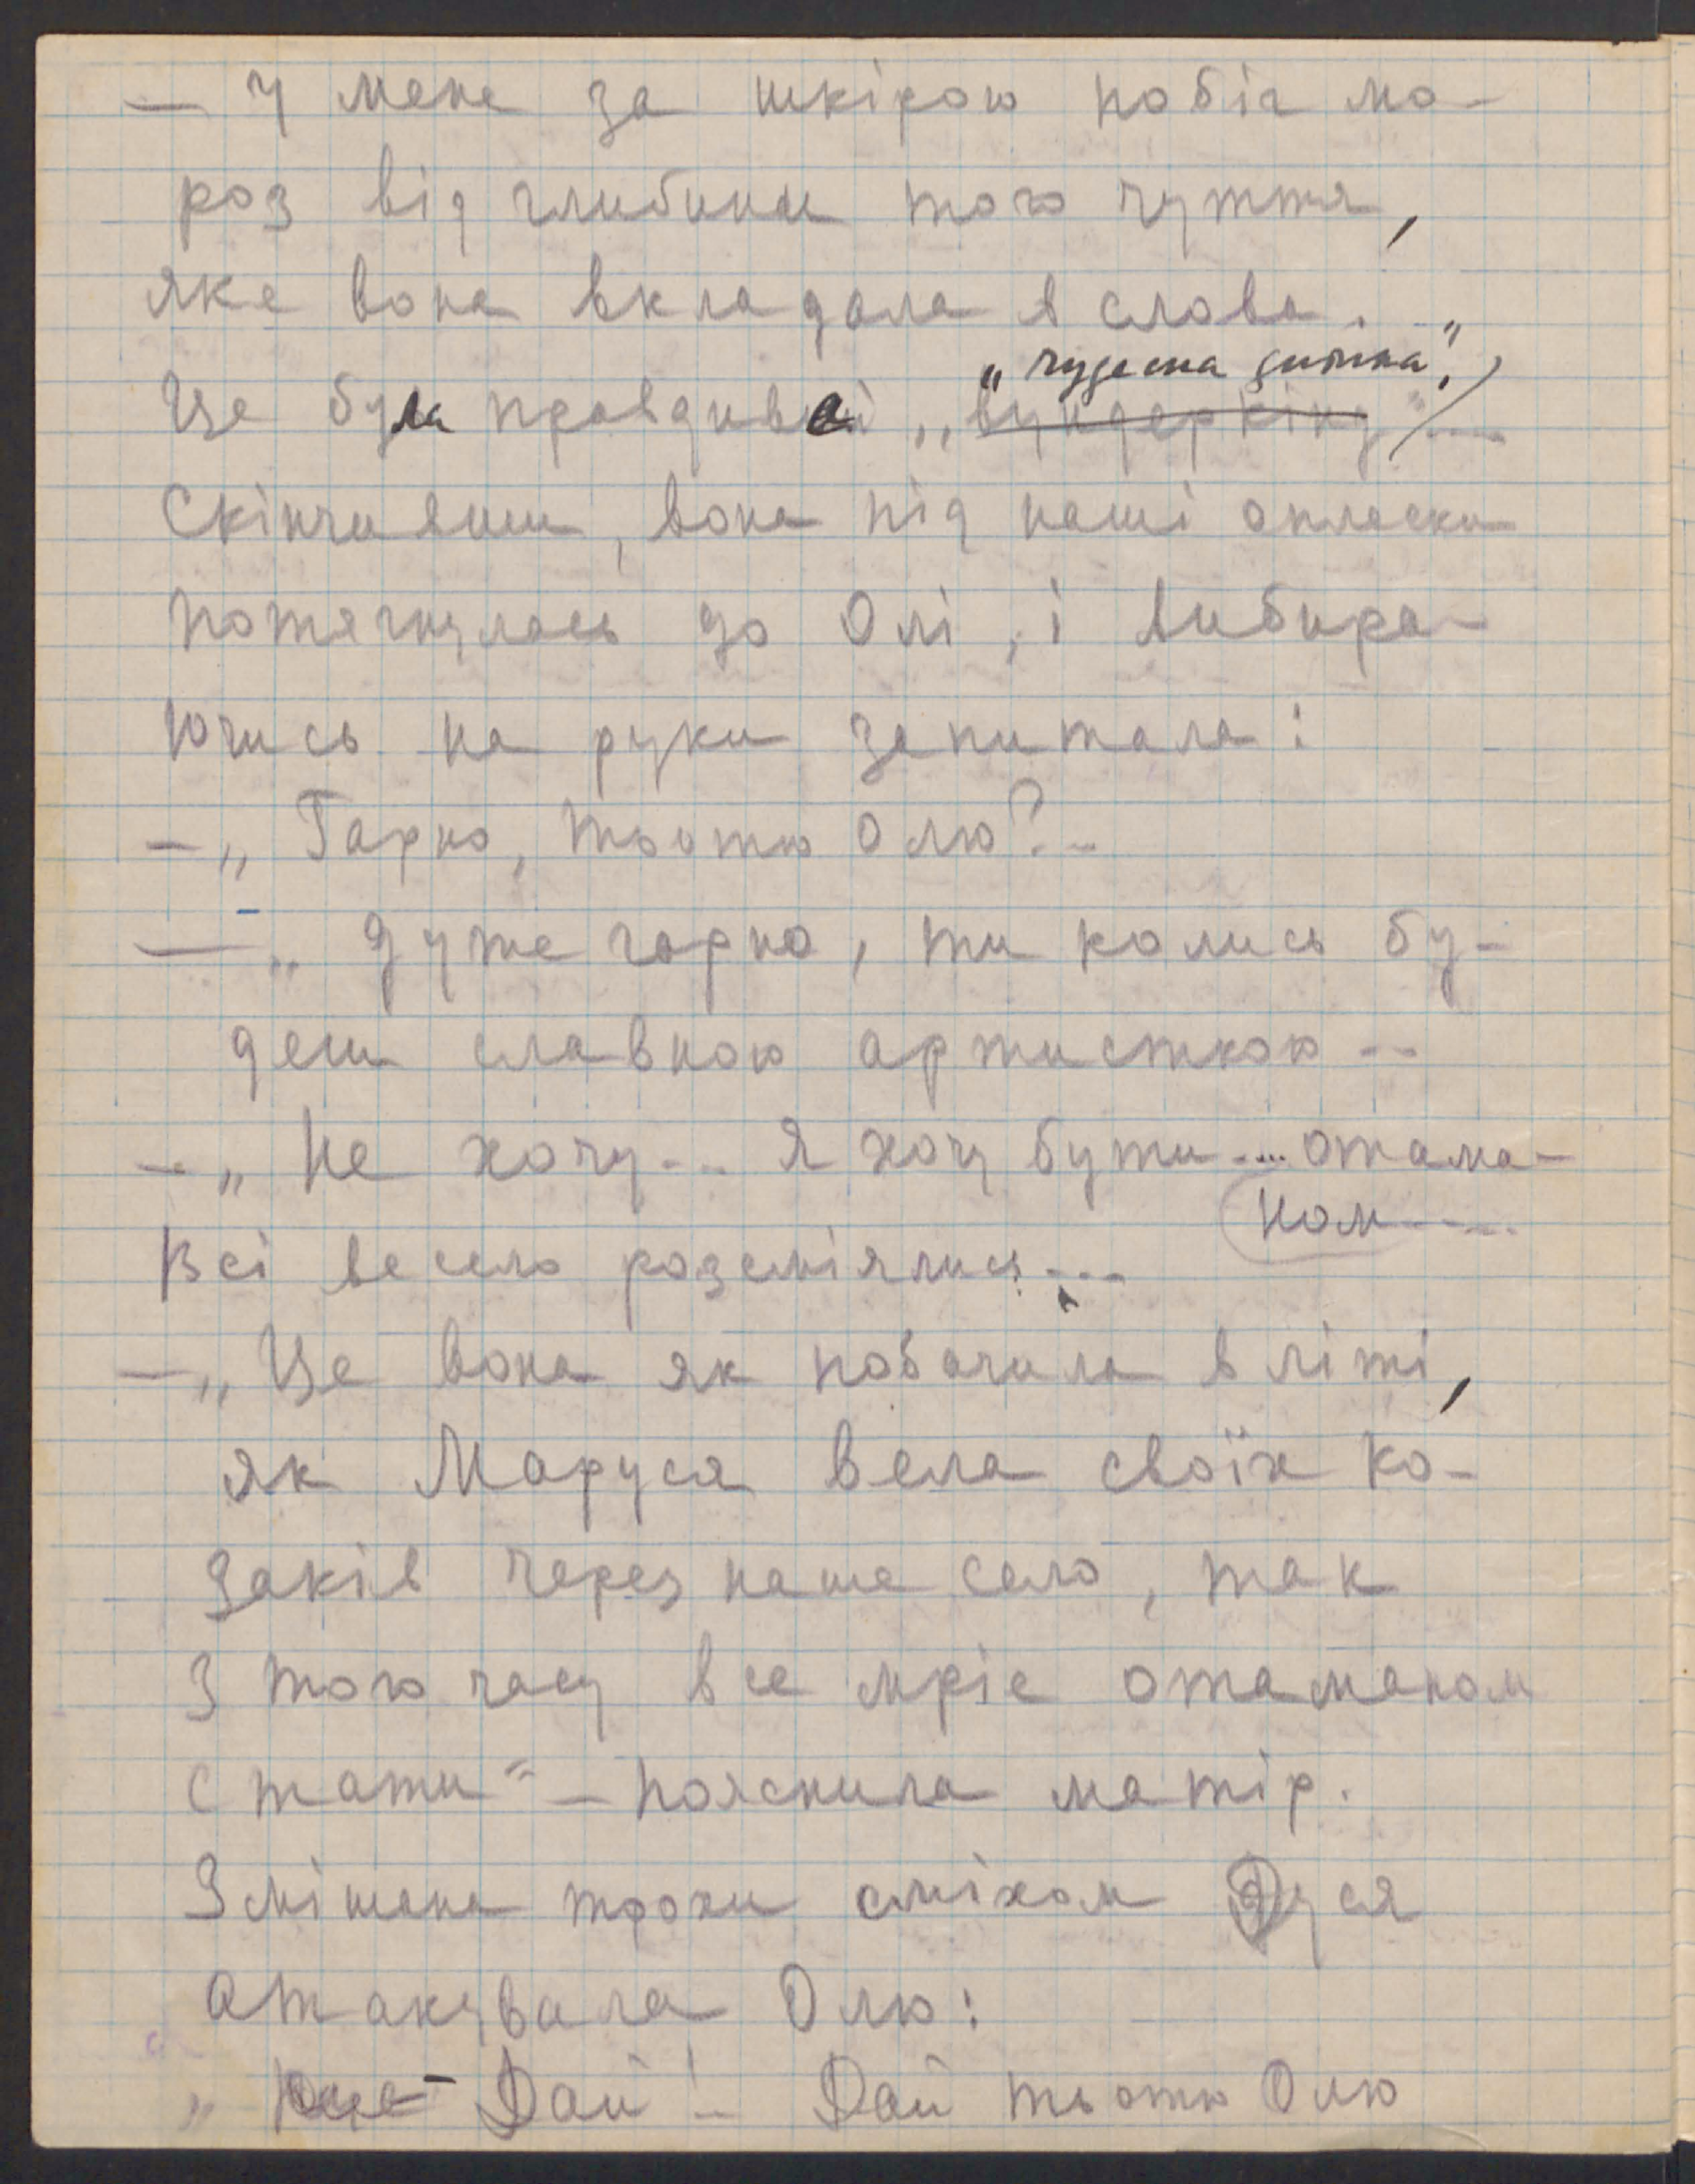 — У мене за шкірою побіг мо-
роз від глибини того чуття,
яке вона вкладала в слова.
„чудесна дитина".
Це була правдива „вундеркінд"...
Скінчивши, вона під наші оплески
потягнулась до Олі, і вибира-
ючись на руки запитала:
— „Гарно, тьотю Олю?..
— „Дуже гарно, ти колись бу-
деш славною артисткою..
— „Не хочу... Я хочу бути.... отама-
ном.....
Всі весело розсміялись...
— „Це вона як побачила в літі,
як Маруся вела своїх ко-
заків через наше село, так
з того часу все мріє отаманом
стати" — пояснила матір.
Змішана трохи сміхом Дуся
атакувала Олю:
„ Дай! — Дай тьотю Олю